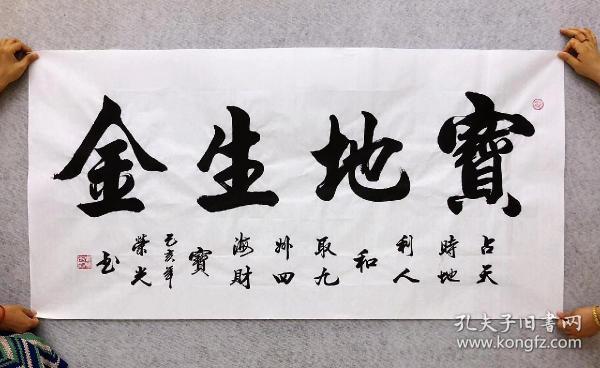 寶地生金
占天
時地
利人
和
取九
州四
海財
寶
己亥年
榮光
书
孔夫子旧書网
www.kongfz.com